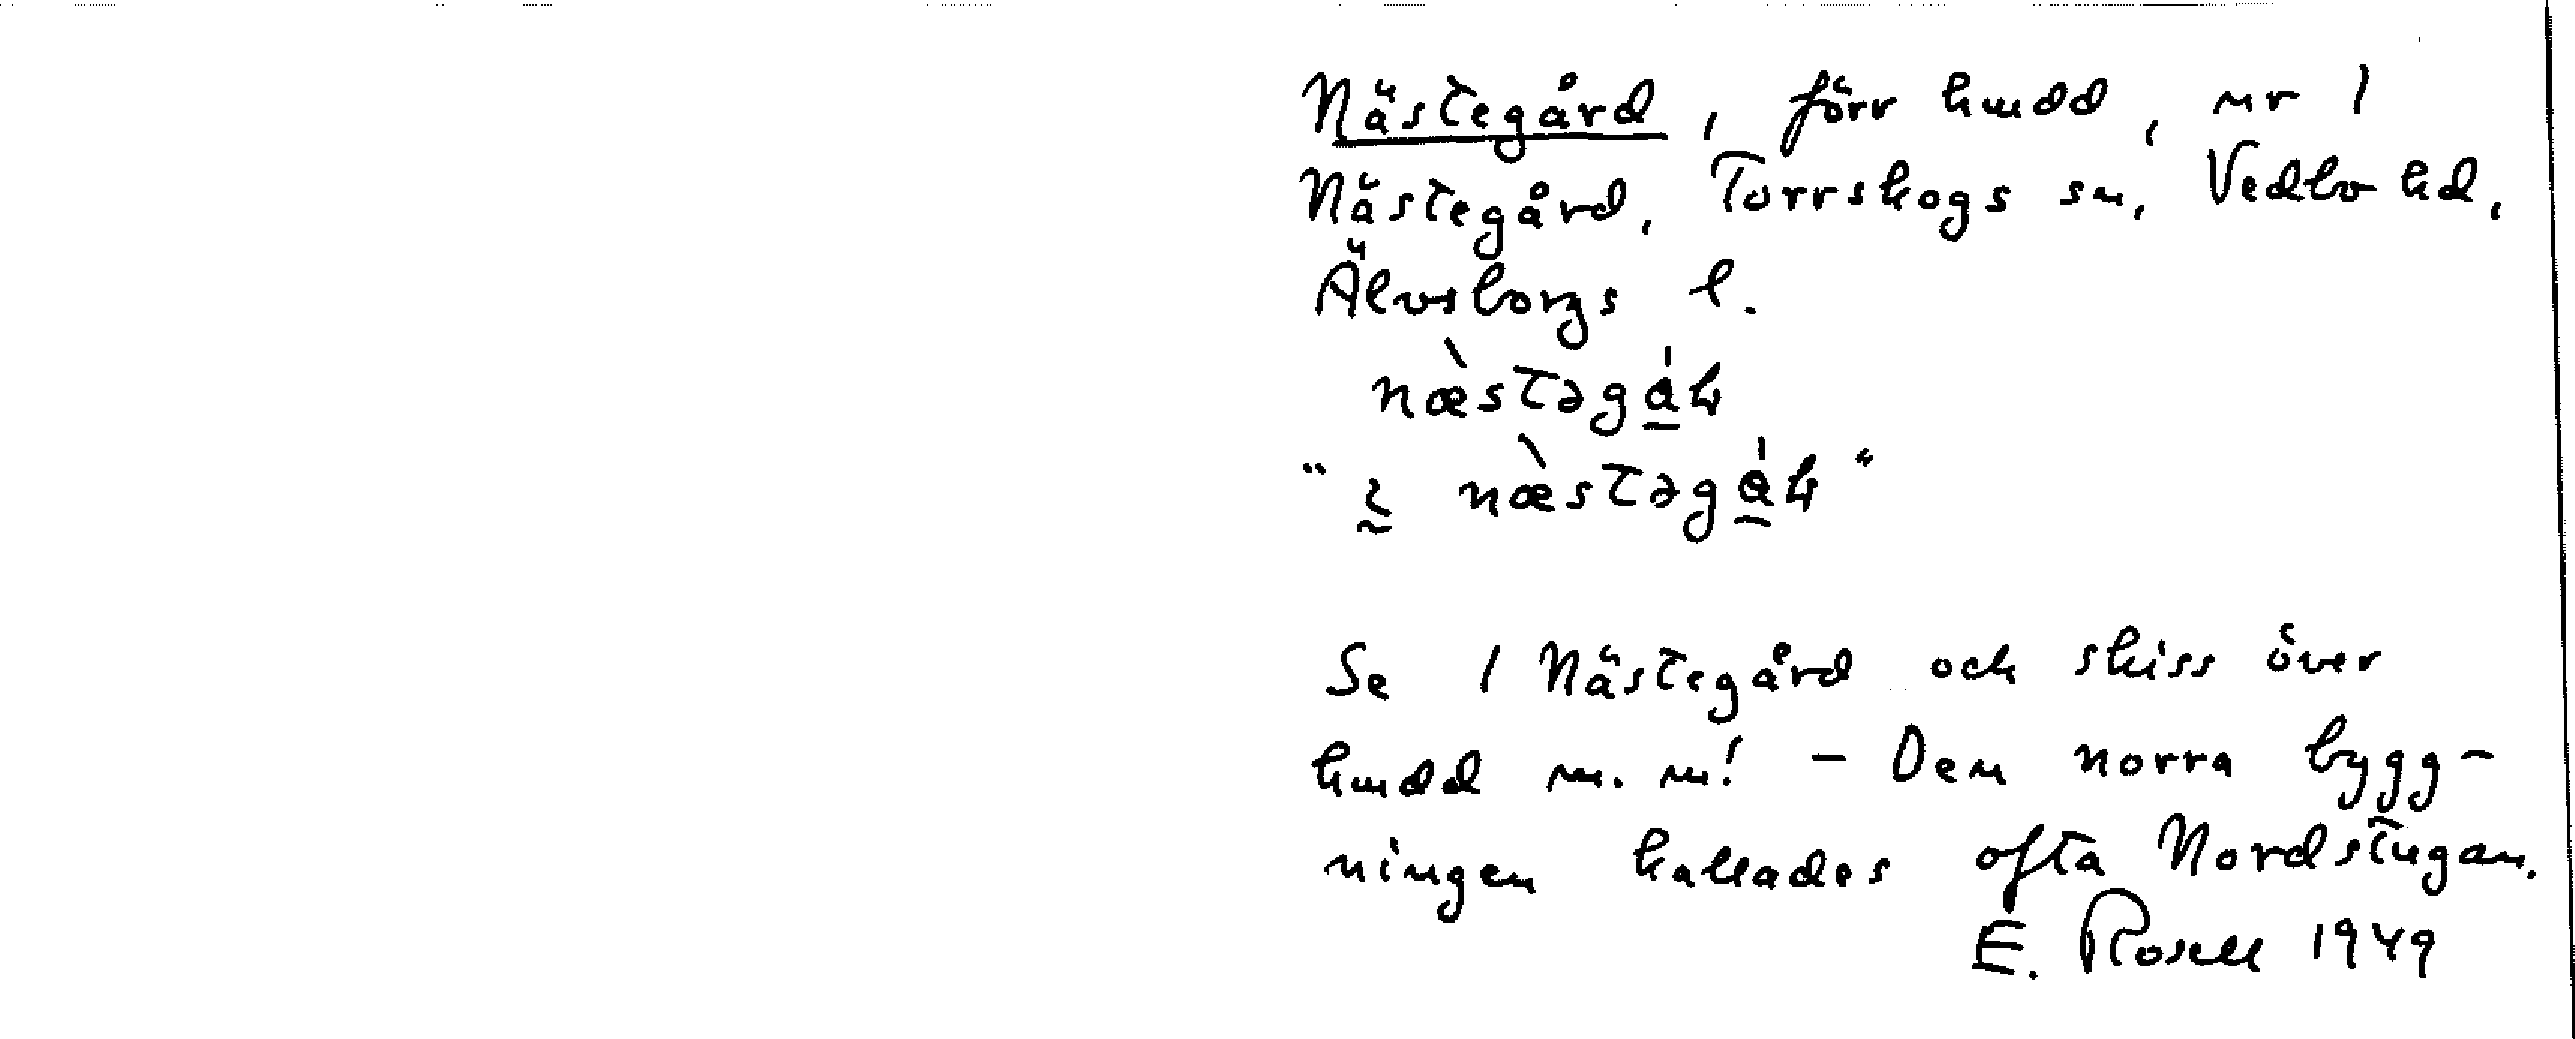 Nästegård, förr hmdd, nr 1
Nästegård, Torrskogs sn, Vedbo hd,
Älvsborgs l.
Se 1 Nästegård och skiss över
hmdd m. m! – Den norra bygg-
ningen kallades ofta Nordstugan.
E. Rosell 1949